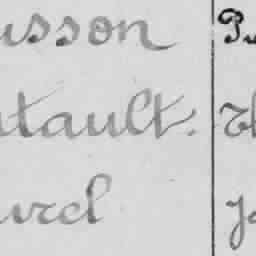 usson Pu
tault. Th
urel Ja